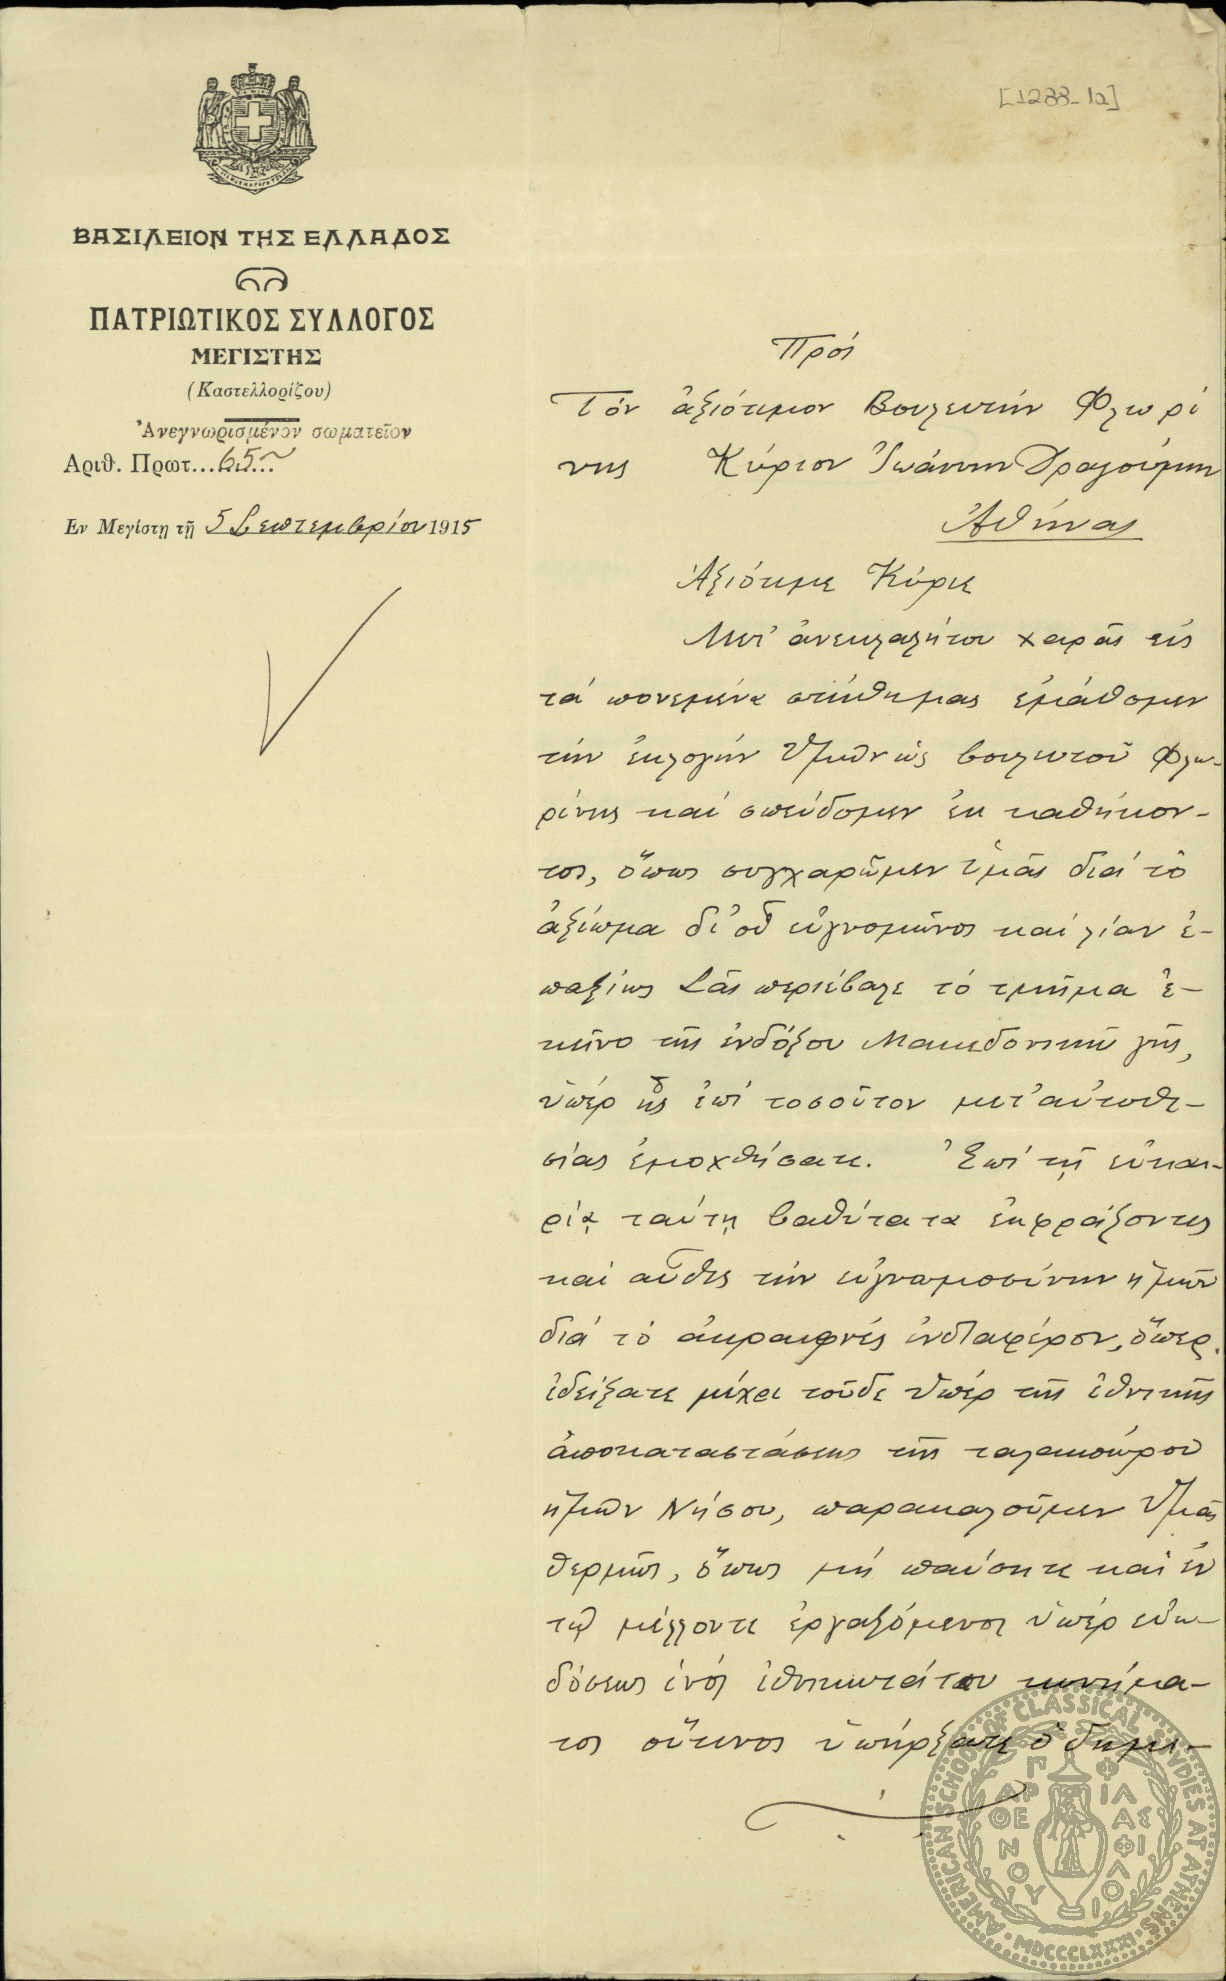 [1288-1a]
ΒΑΣΙΛΕΙΟΝ ΤΗΣ ΕΛΛΑΔΟΣ
ΠΑΤΡΙΩΤΙΚΟΣ ΣΥΛΛΟΓΟΣ
ΜΕΓΙΣΤΗΣ
(Καστελλορίζου)
Ἀνεγνωρισμένον σωματεῖον
Αριθ. Πρωτ... 65 ...
Εν Μεγίστῃ τῇ 5 Σεπτεμβρίου 1915
Πρὸς
Τὸν ἀξιότιμον Βουλευτὴν Φλωρί
νης Κύριον Ἰωάννην Δραγούμην
Ἀθήνας
Ἀξιότιμε Κύριε
Μετ' ἀνεκλαλήτου χαρᾶς εἰς
τά πονεμένα στήθη μας ἐμάθομεν
τήν ἐκλογήν Ὑμῶν ὡς βουλευτοῦ Φλω-
ρίνης καί σπεύδομεν ἐκ καθήκον-
τος, ὅπως συγχαρῶμεν Ὑμᾶς διά τὸ
ἀξίωμα δι' οὗ εὐγνομῶνος καί λίαν ἐ-
παξίως Σᾶς περιέβαλε τό τμῆμα ἐ-
κεῖνο τῆς ἐνδόξου Μακεδονικῆς γῆς,
ὑπέρ ἧς ἐπί τοσοῦτον μετ' αὐτοθυ-
σίας ἐμοχθήσατε. Ἐπί τῇ εὐκαι-
ρίᾳ ταύτῃ βαθύτατα ἐκφράζοντες
καί αὖθις τήν εὐγνωμοσύνην ἡμῶν
διά τό ἀκραιφνές ἐνδιαφέρον, ὅπερ
ἐδείξατε μέχρι τοῦδε ὑπέρ τῆς ἐθνικῆς
ἀποκαταστάσεως τῆς ταλαιπώρου
ἡμῶν Νήσου, παρακαλοῦμεν Ὑμᾶς
θερμῶς, ὅπως μή παύσητε καί ἐν
τῷ μέλλοντι ἐργαζόμενος ὑπέρ εὐω-
δόσεως ἑνός ἐθνικωτάτου κινήμα-
τος οὕτινος ὑπήρξατε ὁ δημι-
AMERICAN SCHOOL OF CLASSICAL STUDIES AT ATHENS
MDCCCLXXXI
ΠΑΡΘΕΝΟΥ ΦΙΛΑΣ ΦΙΛΟΙ